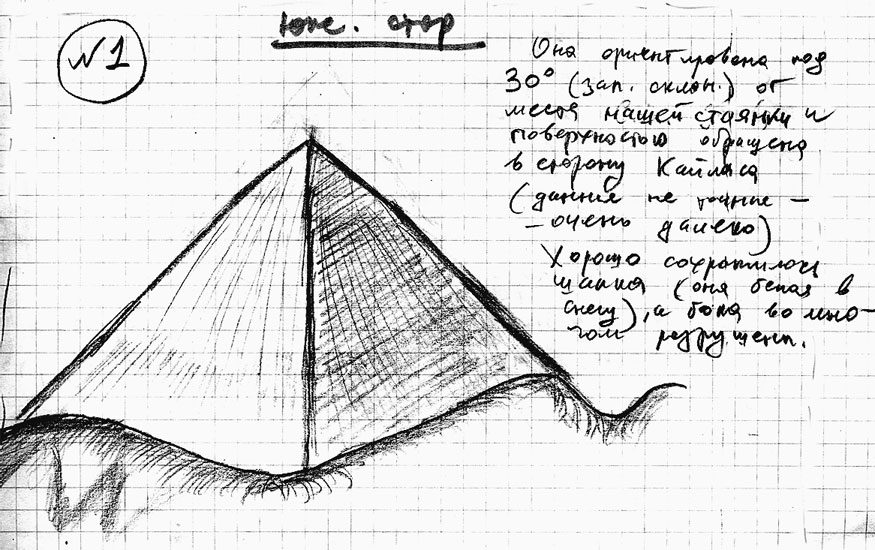 №1
Юже. стор
Она ориентирована под
30° (зап. склон.) от
места нашей стоянки и
поверхностью обращена
в сторону Кайласа
(данные не точные –
– очень далеко)
Хорошо сохранилась
шапка (она белая в
снегу), а бока во мно-
гом разрушены.